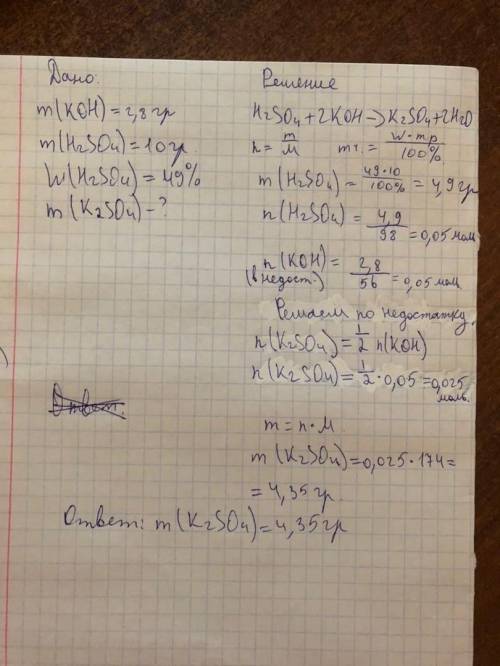 Дано:
m(KOH)=2,8гр
m(H2SO4)=10гр.
W(H2SO4)=49%
m(K2SO4)-?
Решение
H2SO4+2KOH→K2SO4+2H2O
n=m/M mв.=W·mр/100%
m(H2SO4)=49·10/100%=4,9гр
n(H2SO4)=4,9/98=0,05моль
n(KOH)=2,8/56=0,05моль
(в недост.)
Решаем по недостатку.
n(K2SO4)=1/2 n(KOH)
n(K2SO4)=1/2·0,05=0,025
моль.
m=n·M
m(K2SO4)=0,025·174=
=4,35гр.
Ответ:
Ответ: m(K2SO4)=4,35гр